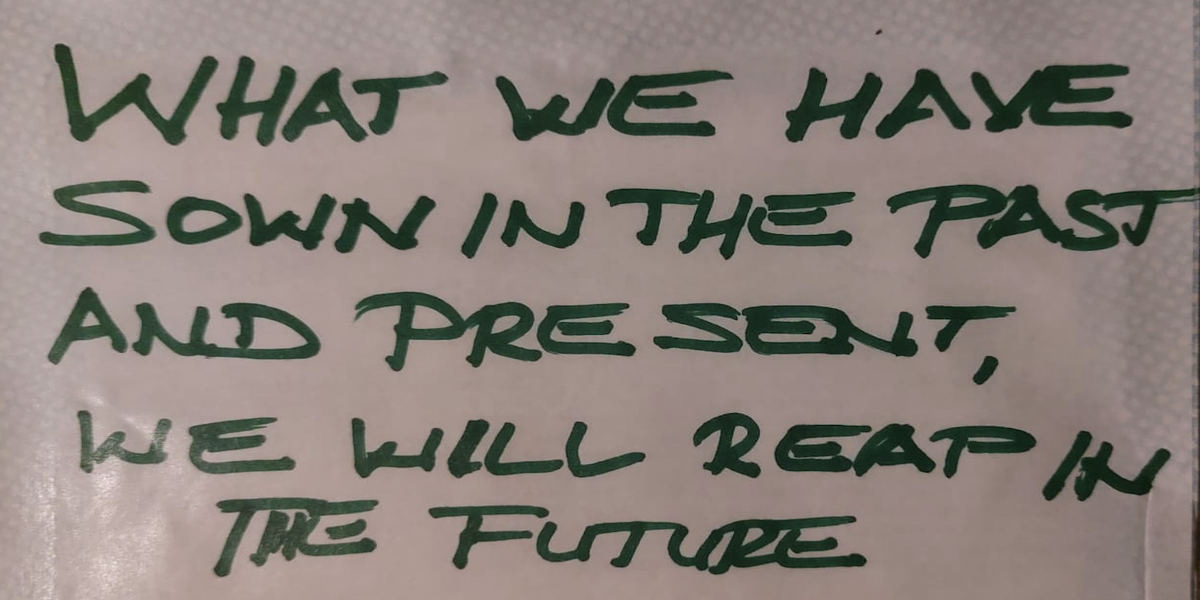 WHAT WE HAVE
SOWN IN THE PAST
AND PRESENT,
WE WILL REAP IN
THE FUTURE